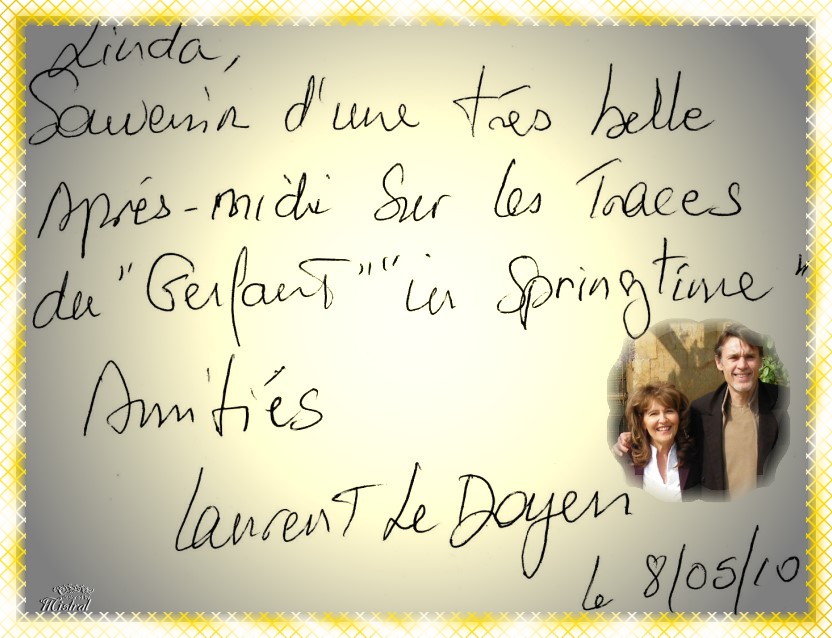 Linda,
Souvenir d'une très belle
Après-midi Sur les Traces
du "Gerfaut" "in Springtime"
Amitiés
Laurent Le Doyen
le 8/05/10
Mistral